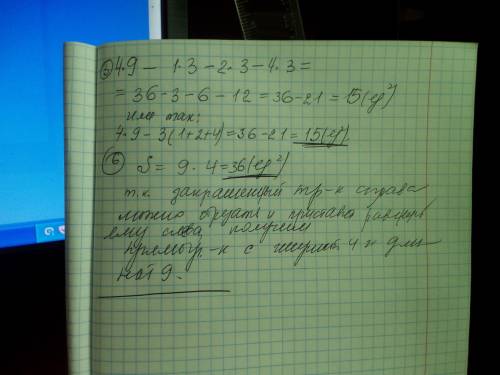 а) 4·9 − 1·3 − 2·3 − 4·3 =
= 36 − 3 − 6 − 12 = 36 − 21 = 15 (ед²)
или так:
4·9 − 3(1+2+4) = 36 − 21 = 15(ед²)
б) S = 9·4 = 36(ед²)
т.к. закрашенный тр-к справа
можно отрезать и приставив равный
ему слева, получим
прямоуг.-к с шириной 4 и дли
ной 9.